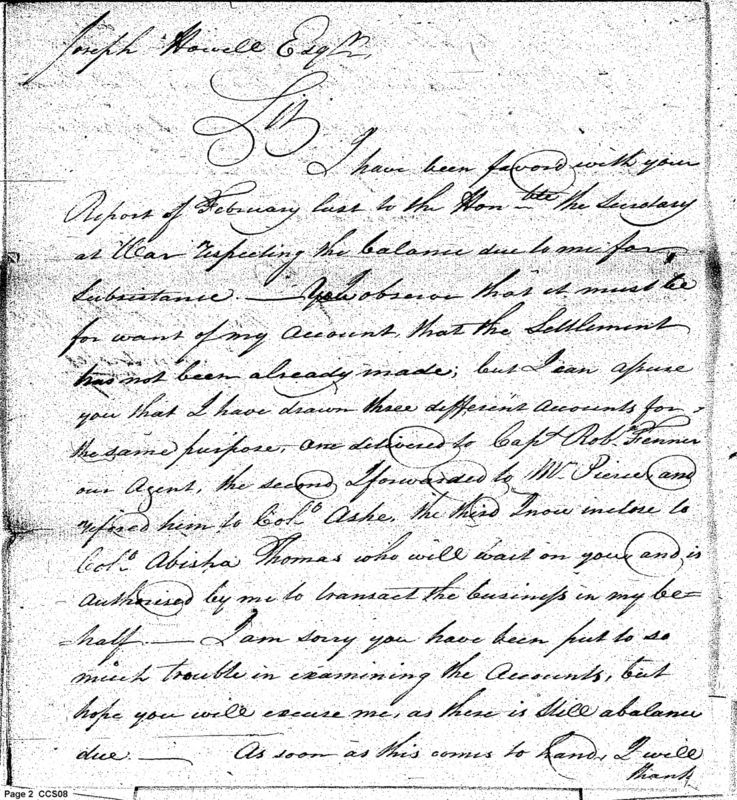 Joseph Howell Esqr.
Sir
I have been favord with your
Report of February last to the Hon.ble the Secretary
at War respecting the balance due to me for
Subsistance. — You observe that it must be
for want of my Account, that the Settlement
has not been already made; but I can assure
you that I have drawn three different accounts for
the same purpose, one delivered to Capt. Rob.t Fenner
our Agent, the second I forwarded to Mr. Pierce and
refired him to Col.o Ashe, the third I now inclose to
Col.o Abisha Thomas who will wait on you, and is
authorised by me to transact the business in my be=
=half. — I am sorry you have been put to so
much trouble in examining the Accounts, but
hope you will excuse me, as there is still a balance
due. — As soon as this comes to hand, I will
thank
Page 2 CCS08